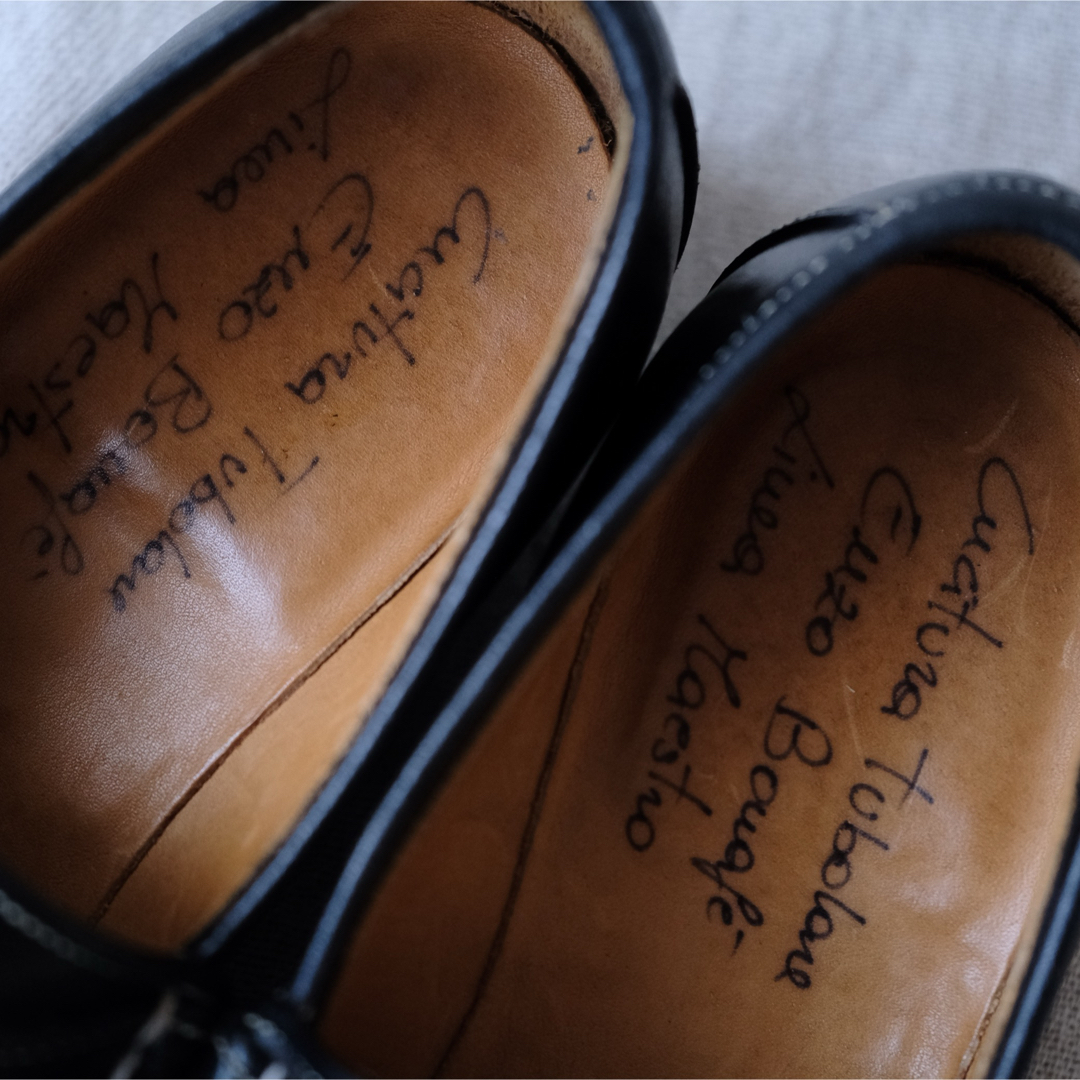 Cucitura Tubolare
Enzo Bonafè
Linea Maestro
Cucitura Tubolare
Enzo Bonafè
Linea Maestro